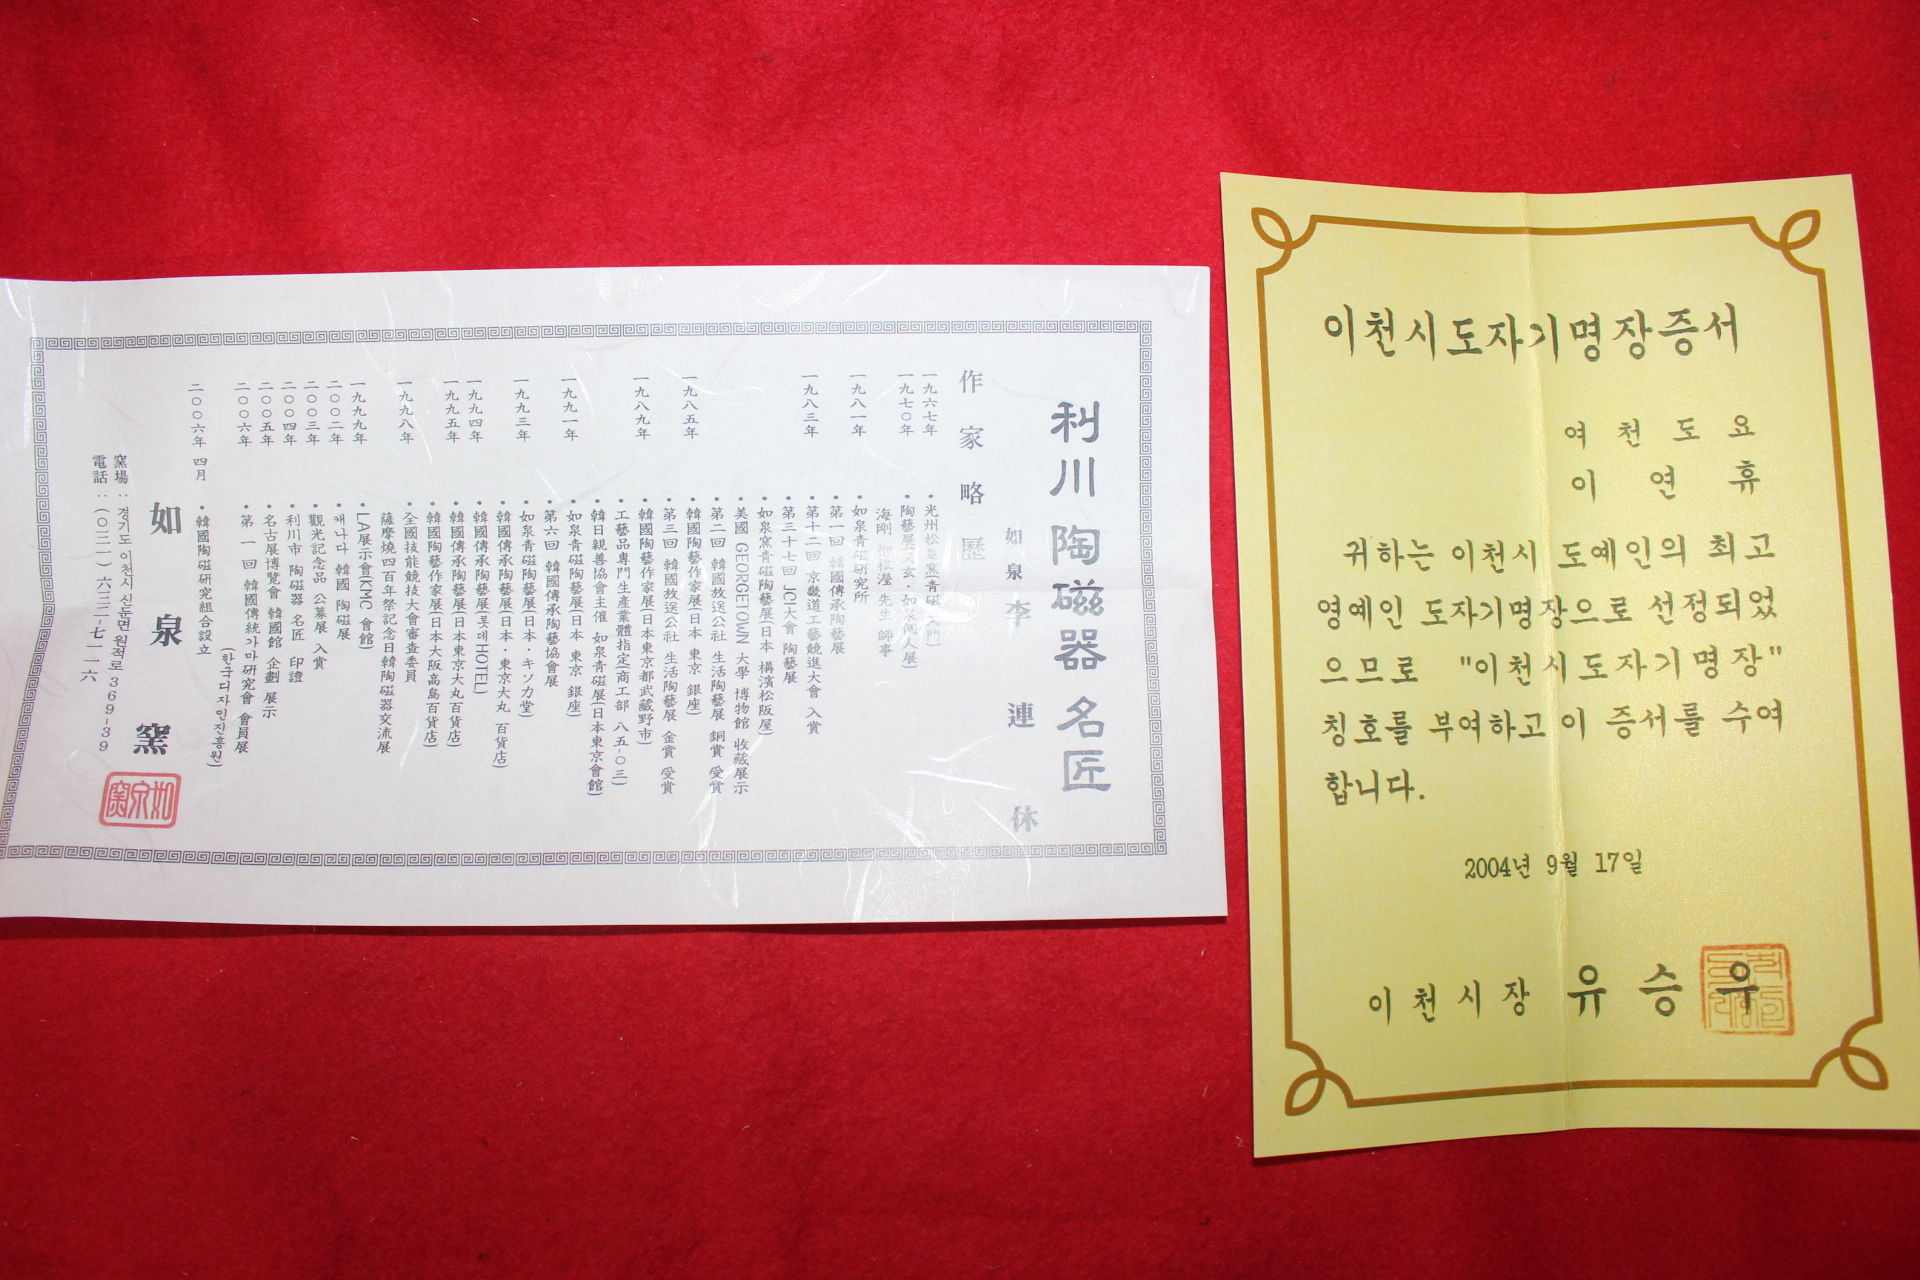 利川 陶磁器 名匠
如泉 李連休
作家略歷
一九六七年 • 光州松
一九七〇年 • 陶藝展
海剛 先生 師事
一九八一年 • 如泉青磁研究所
• 第一回 韓國傳承陶藝展
一九八三年 • 第十二回 京畿道工藝競進大會 入賞
• 第三十七回 JCI大會 陶藝展
• 如泉窯青磁陶藝展(日本 橫濱松阪屋)
• 美國 GEORGETOWN 大學 博物館 收藏展示
• 第二回 韓國放送公社 生活陶藝展 銅賞 受賞
一九八五年 • 韓國陶藝作家展(日本 東京 銀座)
• 第三回 韓國放送公社 生活陶藝展 金賞 受賞
一九八九年 • 韓國陶藝作家展(日本東京都武藏野市)
• 工藝品專門生産業體指定(商工部 八五-〇三)
• 韓日親善協會主催 如泉青磁展(日本東京會館)
一九九一年 • 如泉青磁陶藝展(日本 東京 銀座)
• 第六回 韓國傳承陶藝協會展
一九九三年 • 如泉青磁陶藝展(日本・キソカ堂)
• 韓國傳承陶藝展(日本・東京大丸 百貨店)
一九九四年 • 韓國傳承陶藝展(롯데HOTEL)
一九九五年 • 韓國傳承陶藝展(日本東京大丸百貨店)
• 韓國陶藝作家展(日本大阪高島百貨店)
一九九八年 • 全國技能競技大會審查委員
薩摩燒四百年祭記念日韓陶磁器交流展
一九九九年 • LA展示會(KMC 會館)
二〇〇二年 • 캐나다 韓國 陶磁展
二〇〇三年 • 觀光記念品 公募展 入賞
二〇〇四年 • 利川市 陶磁器 名匠 印證
二〇〇五年 • 名古展博覽會 韓國館 企劃 展示
二〇〇六年 • 第一回 韓國傳統가마研究會 會員展
(한국디자인진흥원)
二〇〇六年 四月 • 韓國陶磁研究組合設立
如泉窯
窯場 : 경기도 이천시 신둔면 원적로 369-39
電話 : (〇三一) 六三二-七一一六
如泉窯
이천시도자기명장증서
여천도요
이연휴
귀하는 이천시 도예인의 최고
영예인 도자기명장으로 선정되었
으므로 "이천시도자기명장"
칭호를 부여하고 이 증서를 수여
합니다.
2004년 9월 17일
이천시장 유승우